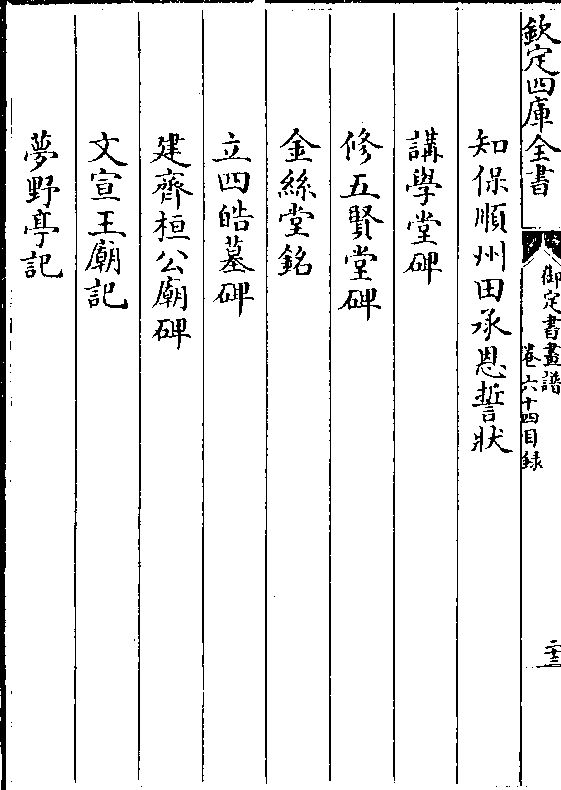 欽定四庫全書
御定書畫譜
卷六十四目録
二十三
知保順州田承恩誓狀
講學堂碑
修五賢堂碑
金絲堂銘
立四皓墓碑
建齊桓公廟碑
文宣王廟記
夢野亭記